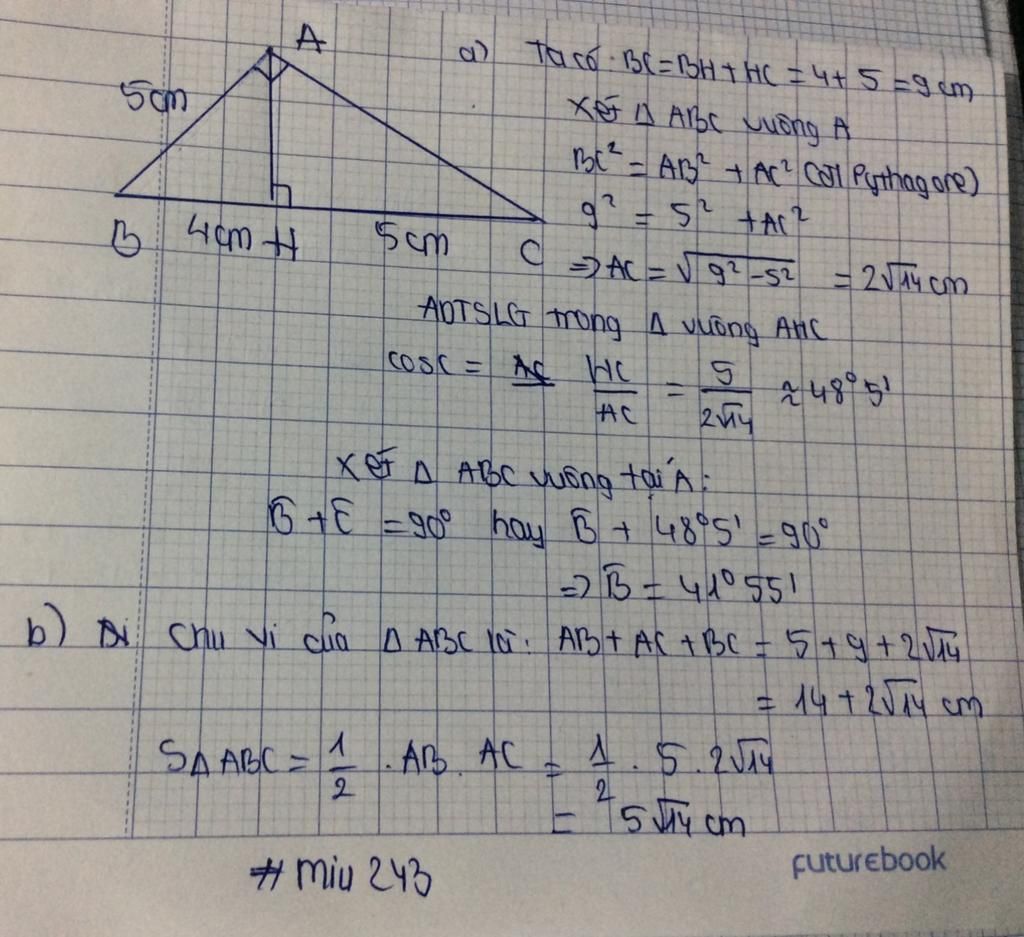 A
5cm
B 4cm H 5cm C
a) Ta có: BC = BH + HC = 4 + 5 = 9 cm
Xét Δ ABC vuông A
BC² = AB² + AC² (ĐL Pythagore)
9² = 5² + AC²
=> AC = √9²-5² = 2√14 cm
ADTSLG trong Δ vuông AHC
cosC = AC HC/AC = 5/2√14 ≈ 48°5'
Xét Δ ABC vuông tại A:
B + C = 90° hay B + 48°5' = 90°
=> B = 41°55'
b) Di Chu vi của Δ ABC là: AB + AC + BC = 5 + 9 + 2√14
= 14 + 2√14 cm
SΔABC = 1/2 . AB . AC = 1/2 . 5 . 2√14
= 5√14 cm
# miu 243
futurebook